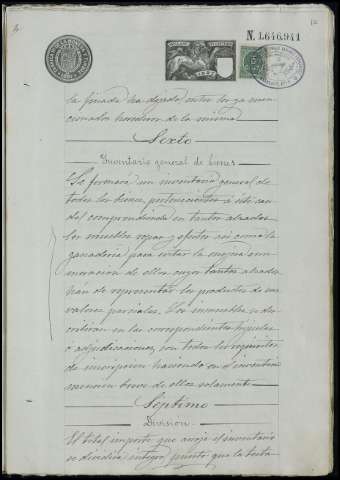 N. 1.646,941
la finada ha dejado entre los ya men-
cionados herederos de la misma
Sexto
Inventario general de bienes
Se formará un inventario general de
todos los bienes pertenecientes á este cau-
dal comprendiendo en tantos alzados
los muebles ropas y efectos asi como la
ganadería para evitar la mejora enu-
meracion de ellos cuyos tantos alzados
han de representar los productos de sus
valores parciales. Los inmuebles se des-
cribiran en las correspondientes hijuelas
ó adjudicaciones, con todos los requisitos
de inscripcion haciendo en el inventario
mencion breve de ellos solamente
Septimo
Division
El total importe que arroje el inventario
se dividira integro, puesto que la testa-